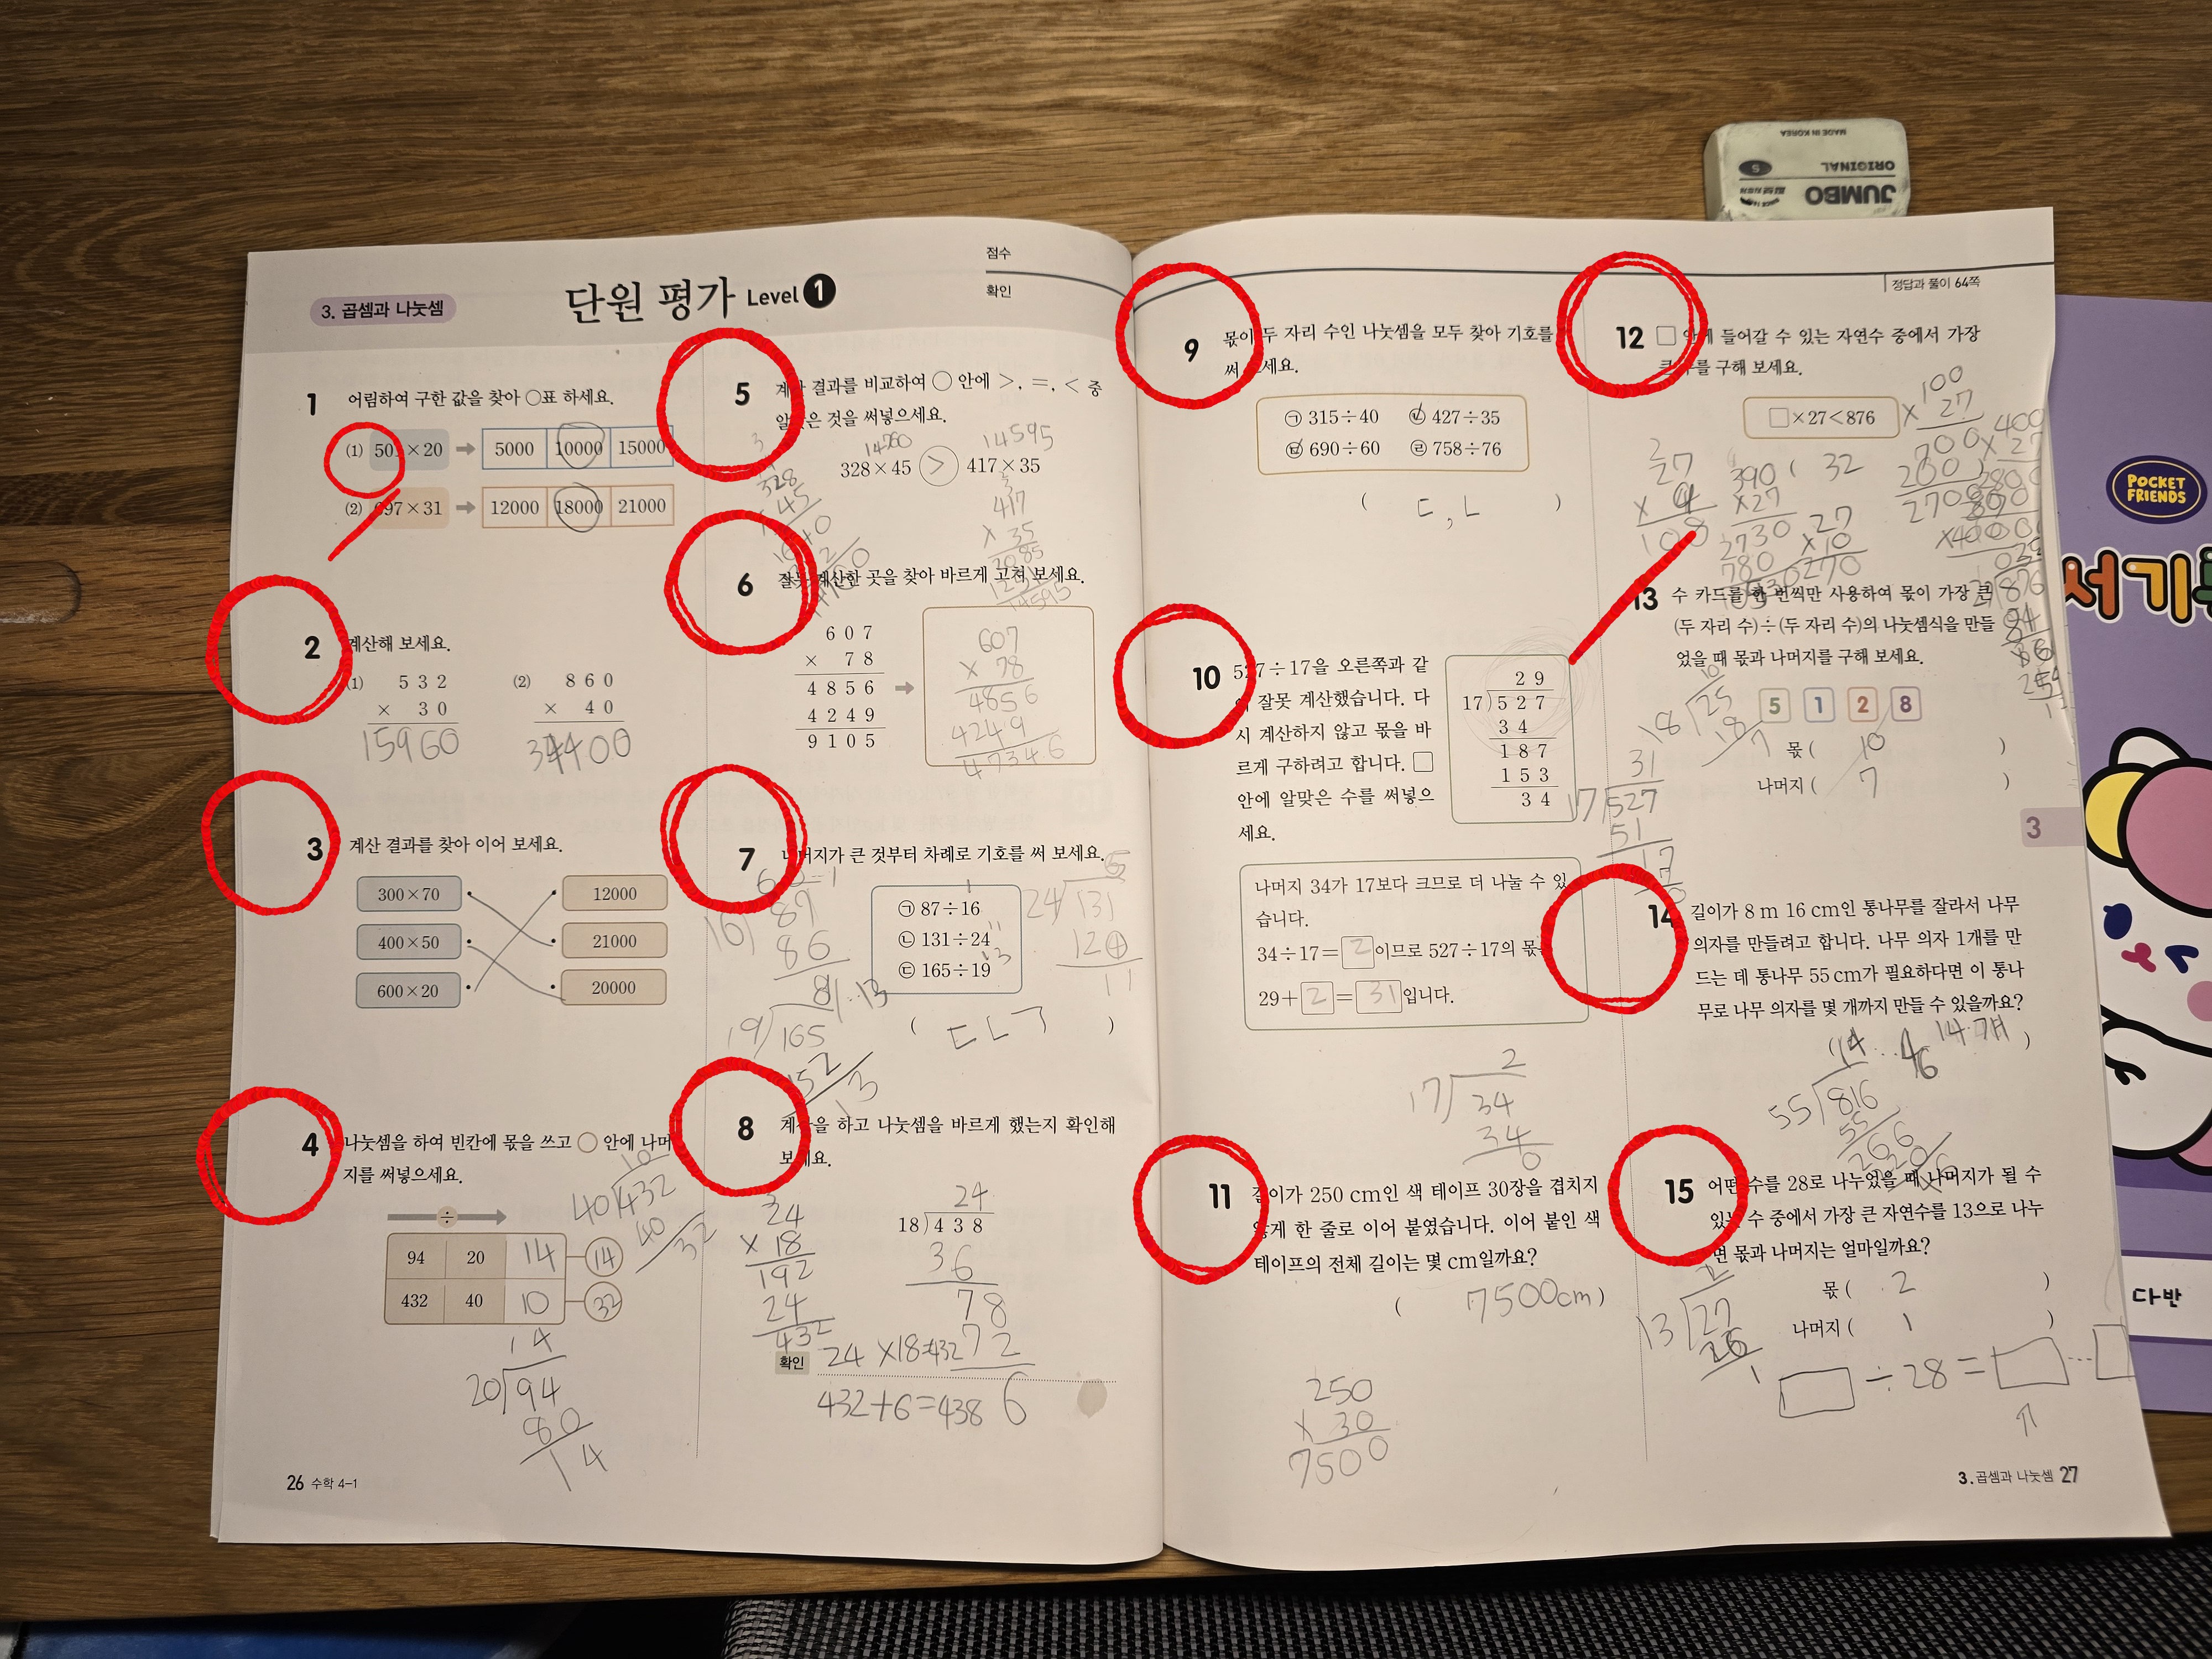 MADE IN KOREA
ORIGINAL
S
JUMBO
점수
확인
3. 곱셈과 나눗셈
단원 평가 Level 1
1 어림하여 구한 값을 찾아 ○표 하세요.
(1) 501×20 → 5000 10000 15000
(2) 697×31 → 12000 18000 21000
2 계산해 보세요.
(1) 532
× 30
15960
(2) 860
× 40
34400
3 계산 결과를 찾아 이어 보세요.
300×70 12000
400×50 21000
600×20 20000
4 나눗셈을 하여 빈칸에 몫을 쓰고 ○ 안에 나머
지를 써넣으세요.
10
40)432
40
32
÷
94 20 14 14
432 40 10 32
14
20)94
80
14
26 수학 4-1
5 계산 결과를 비교하여 ○ 안에 >, =, < 중
알맞은 것을 써넣으세요.
14760 14595
328×45 > 417×35
328
×45
1640
417
×35
2085
14595
6 잘못 계산한 곳을 찾아 바르게 고쳐 보세요.
607
× 78
4856
4249
9105
→
607
× 78
4856
4249
47346
7 나머지가 큰 것부터 차례로 기호를 써 보세요.
㉠ 87÷16
㉡ 131÷24 11
㉢ 165÷19 13
16)87
86
24)131
120
11
19)165
152
13
( ㄷㄴㄱ )
8 계산을 하고 나눗셈을 바르게 했는지 확인해
보세요.
24
×18
192
24
432
24
18)438
36
78
72
6
확인 24×18=432
432+6=438
정답과 풀이 64쪽
9 몫이 두 자리 수인 나눗셈을 모두 찾아 기호를
써 보세요.
㉠ 315÷40 ㉡ 427÷35
㉢ 690÷60 ㉣ 758÷76
( ㄷ, ㄴ )
10 527÷17을 오른쪽과 같
이 잘못 계산했습니다. 다
시 계산하지 않고 몫을 바
르게 구하려고 합니다. □
안에 알맞은 수를 써넣으
세요.
29
17)527
34
187
153
34
31
17)527
51
17
나머지 34가 17보다 크므로 더 나눌 수 있
습니다.
34÷17=2이므로 527÷17의 몫
29+2=31입니다.
2
17)34
34
0
11 길이가 250 cm인 색 테이프 30장을 겹치지
않게 한 줄로 이어 붙였습니다. 이어 붙인 색
테이프의 전체 길이는 몇 cm일까요?
( 7500cm )
250
× 30
7500
12 □ 안에 들어갈 수 있는 자연수 중에서 가장
큰 수를 구해 보세요.
□×27<876
32
27
× 4
108
390
×27
2730
780
27
×10
270
100
× 27
700
200
2700
400
×27
13 수 카드를 한 번씩만 사용하여 몫이 가장 큰
(두 자리 수)÷(두 자리 수)의 나눗셈식을 만들
었을 때 몫과 나머지를 구해 보세요.
5 1 2 8
몫 ( 10 )
나머지 ( 7 )
3
14 길이가 8 m 16 cm인 통나무를 잘라서 나무
의자를 만들려고 합니다. 나무 의자 1개를 만
드는 데 통나무 55 cm가 필요하다면 이 통나
무로 나무 의자를 몇 개까지 만들 수 있을까요?
( 14개 )
14
55)816
55
266
15 어떤 수를 28로 나누었을 때 나머지가 될 수
있는 수 중에서 가장 큰 자연수를 13으로 나누
면 몫과 나머지는 얼마일까요?
몫 ( 2 )
나머지 ( 1 )
2
13)27
26
1
□÷28=□…□
3. 곱셈과 나눗셈 27
POCKET
FRIENDS
서기
다반